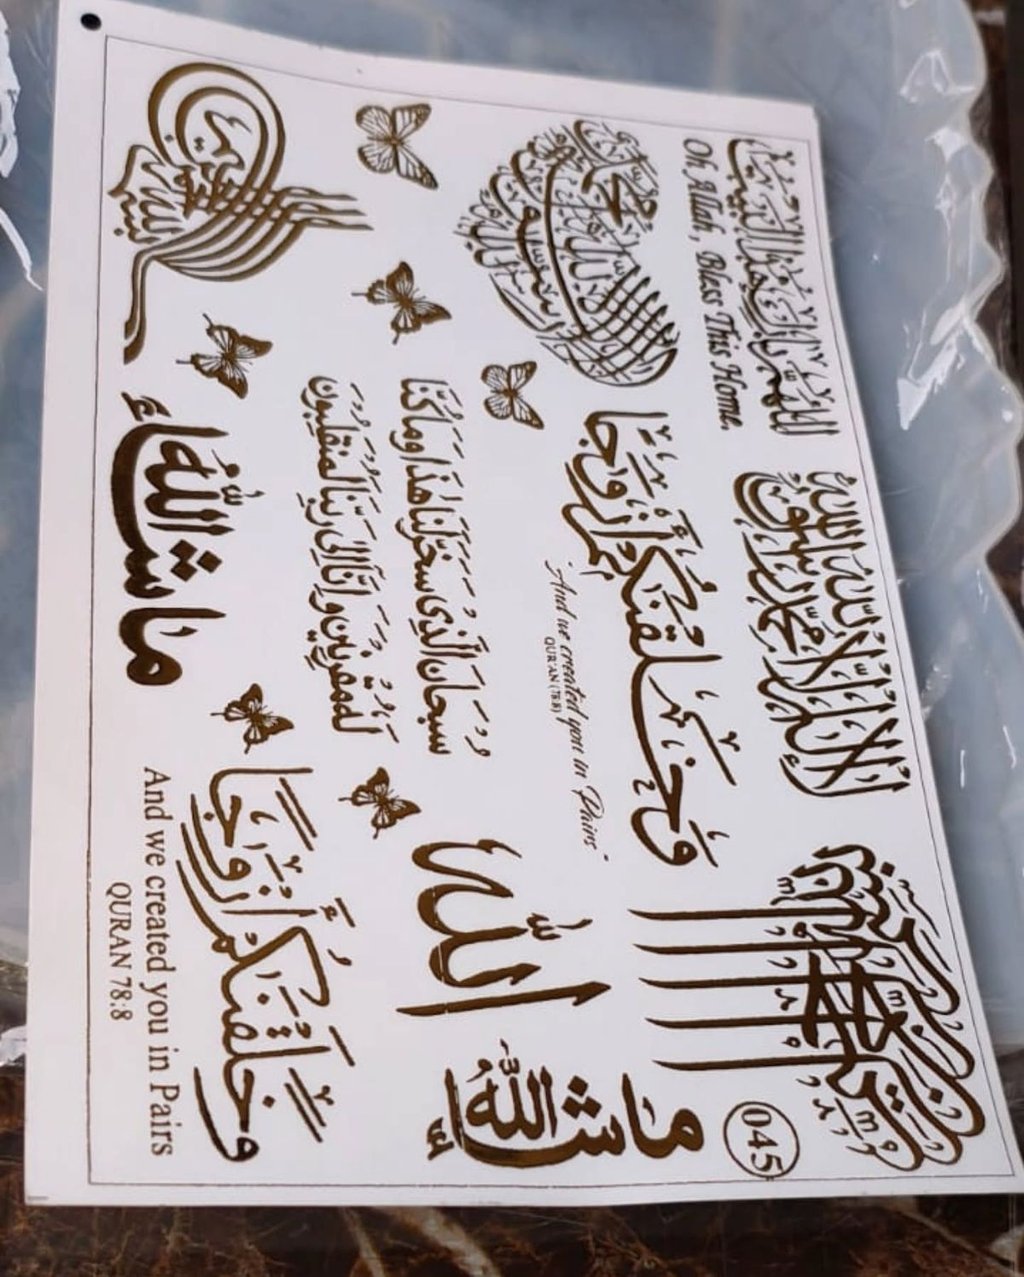 اللهم بارك هذا البيت
Oh, Allah, Bless This Home.
لا إله إلا الله محمد رسول الله
وَخَلَقْنَاكُمْ أَزْوَاجًا
"And we created you in Pairs"
QUR'AN (78:8)
سُبْحَانَ الَّذِي سَخَّرَ لَنَا هَذَا وَمَا كُنَّا
لَهُ مُقْرِنِينَ وَإِنَّا إِلَى رَبِّنَا لَمُنْقَلِبُونَ
الله
ما شاء الله
ما شاء الله
وَخَلَقْنَاكُمْ أَزْوَاجًا
And we created you in Pairs
QURAN 78:8
045